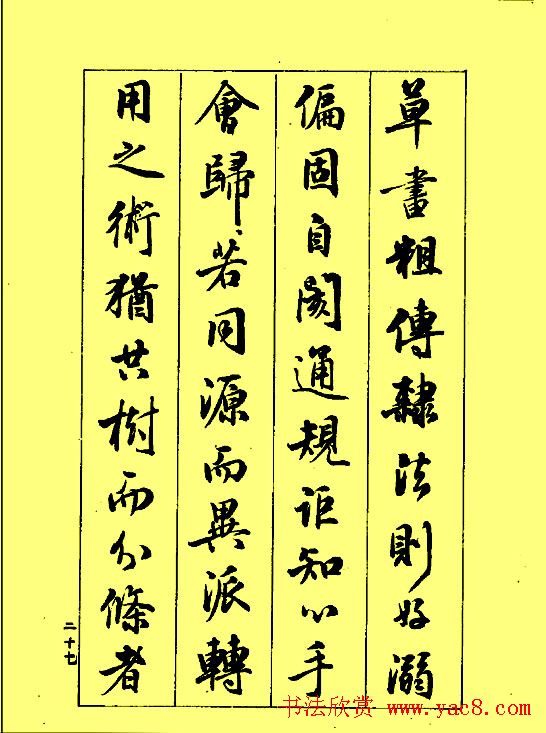 草書粗傳隸法則好溺
偏固自閡通規詎知心手
會歸若同源而異派轉
用之術猶共樹而分條者
二十七
书法欣赏 www.yac8.com